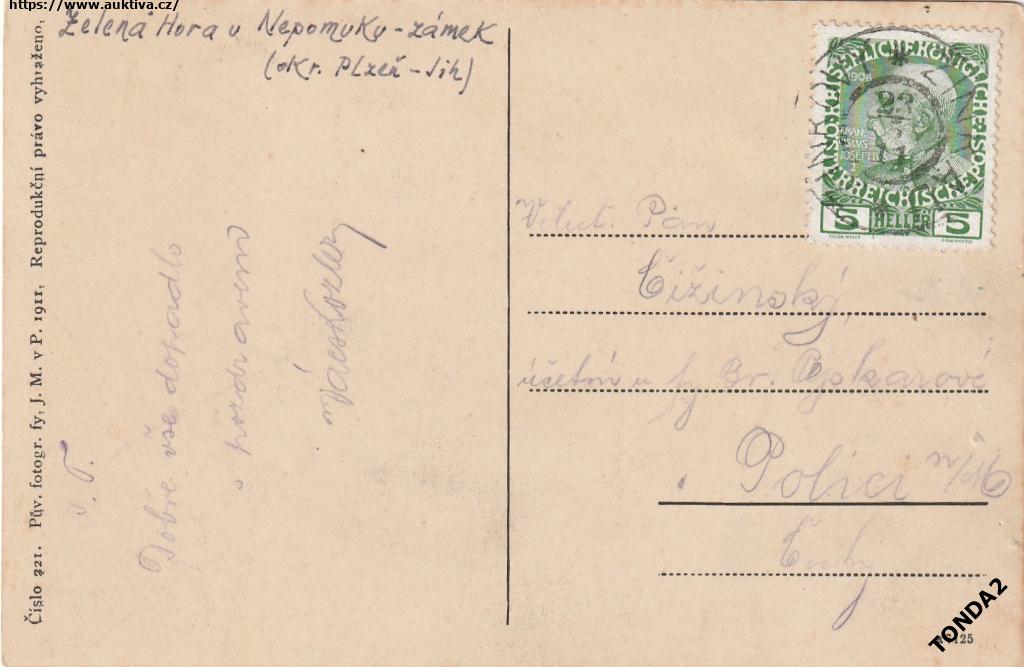 https://www.auktiva.cz/
Zelená Hora u Nepomuku - zámek
(okr. Plzeň - Jih)
Číslo 221. Pův. fotogr. fy. J. M. v P. 1911. Reprodukční právo vyhraženo.
Dobře vše dopadlo
s pozdravem
Pán
Čižinský,
účetní u fy Br. Pejskarové
Polici n/M
Čechy
KAISERLICHE KÖNIGLICHE
ÖSTERREICHISCHE POST
1908
FRAN
CISCUS
JOSEPHUS
I
5 HELLER 5
23
TONDA2
125